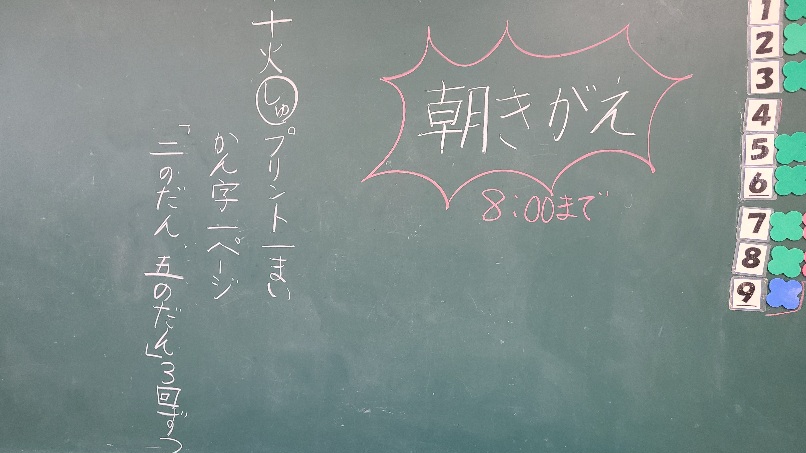 朝きがえ
8:00まで
十火しゅプリント一まい
かん字一ページ
「二のだん、五のだん」3回ずつ
1
2
3
4
5
6
7
8
9